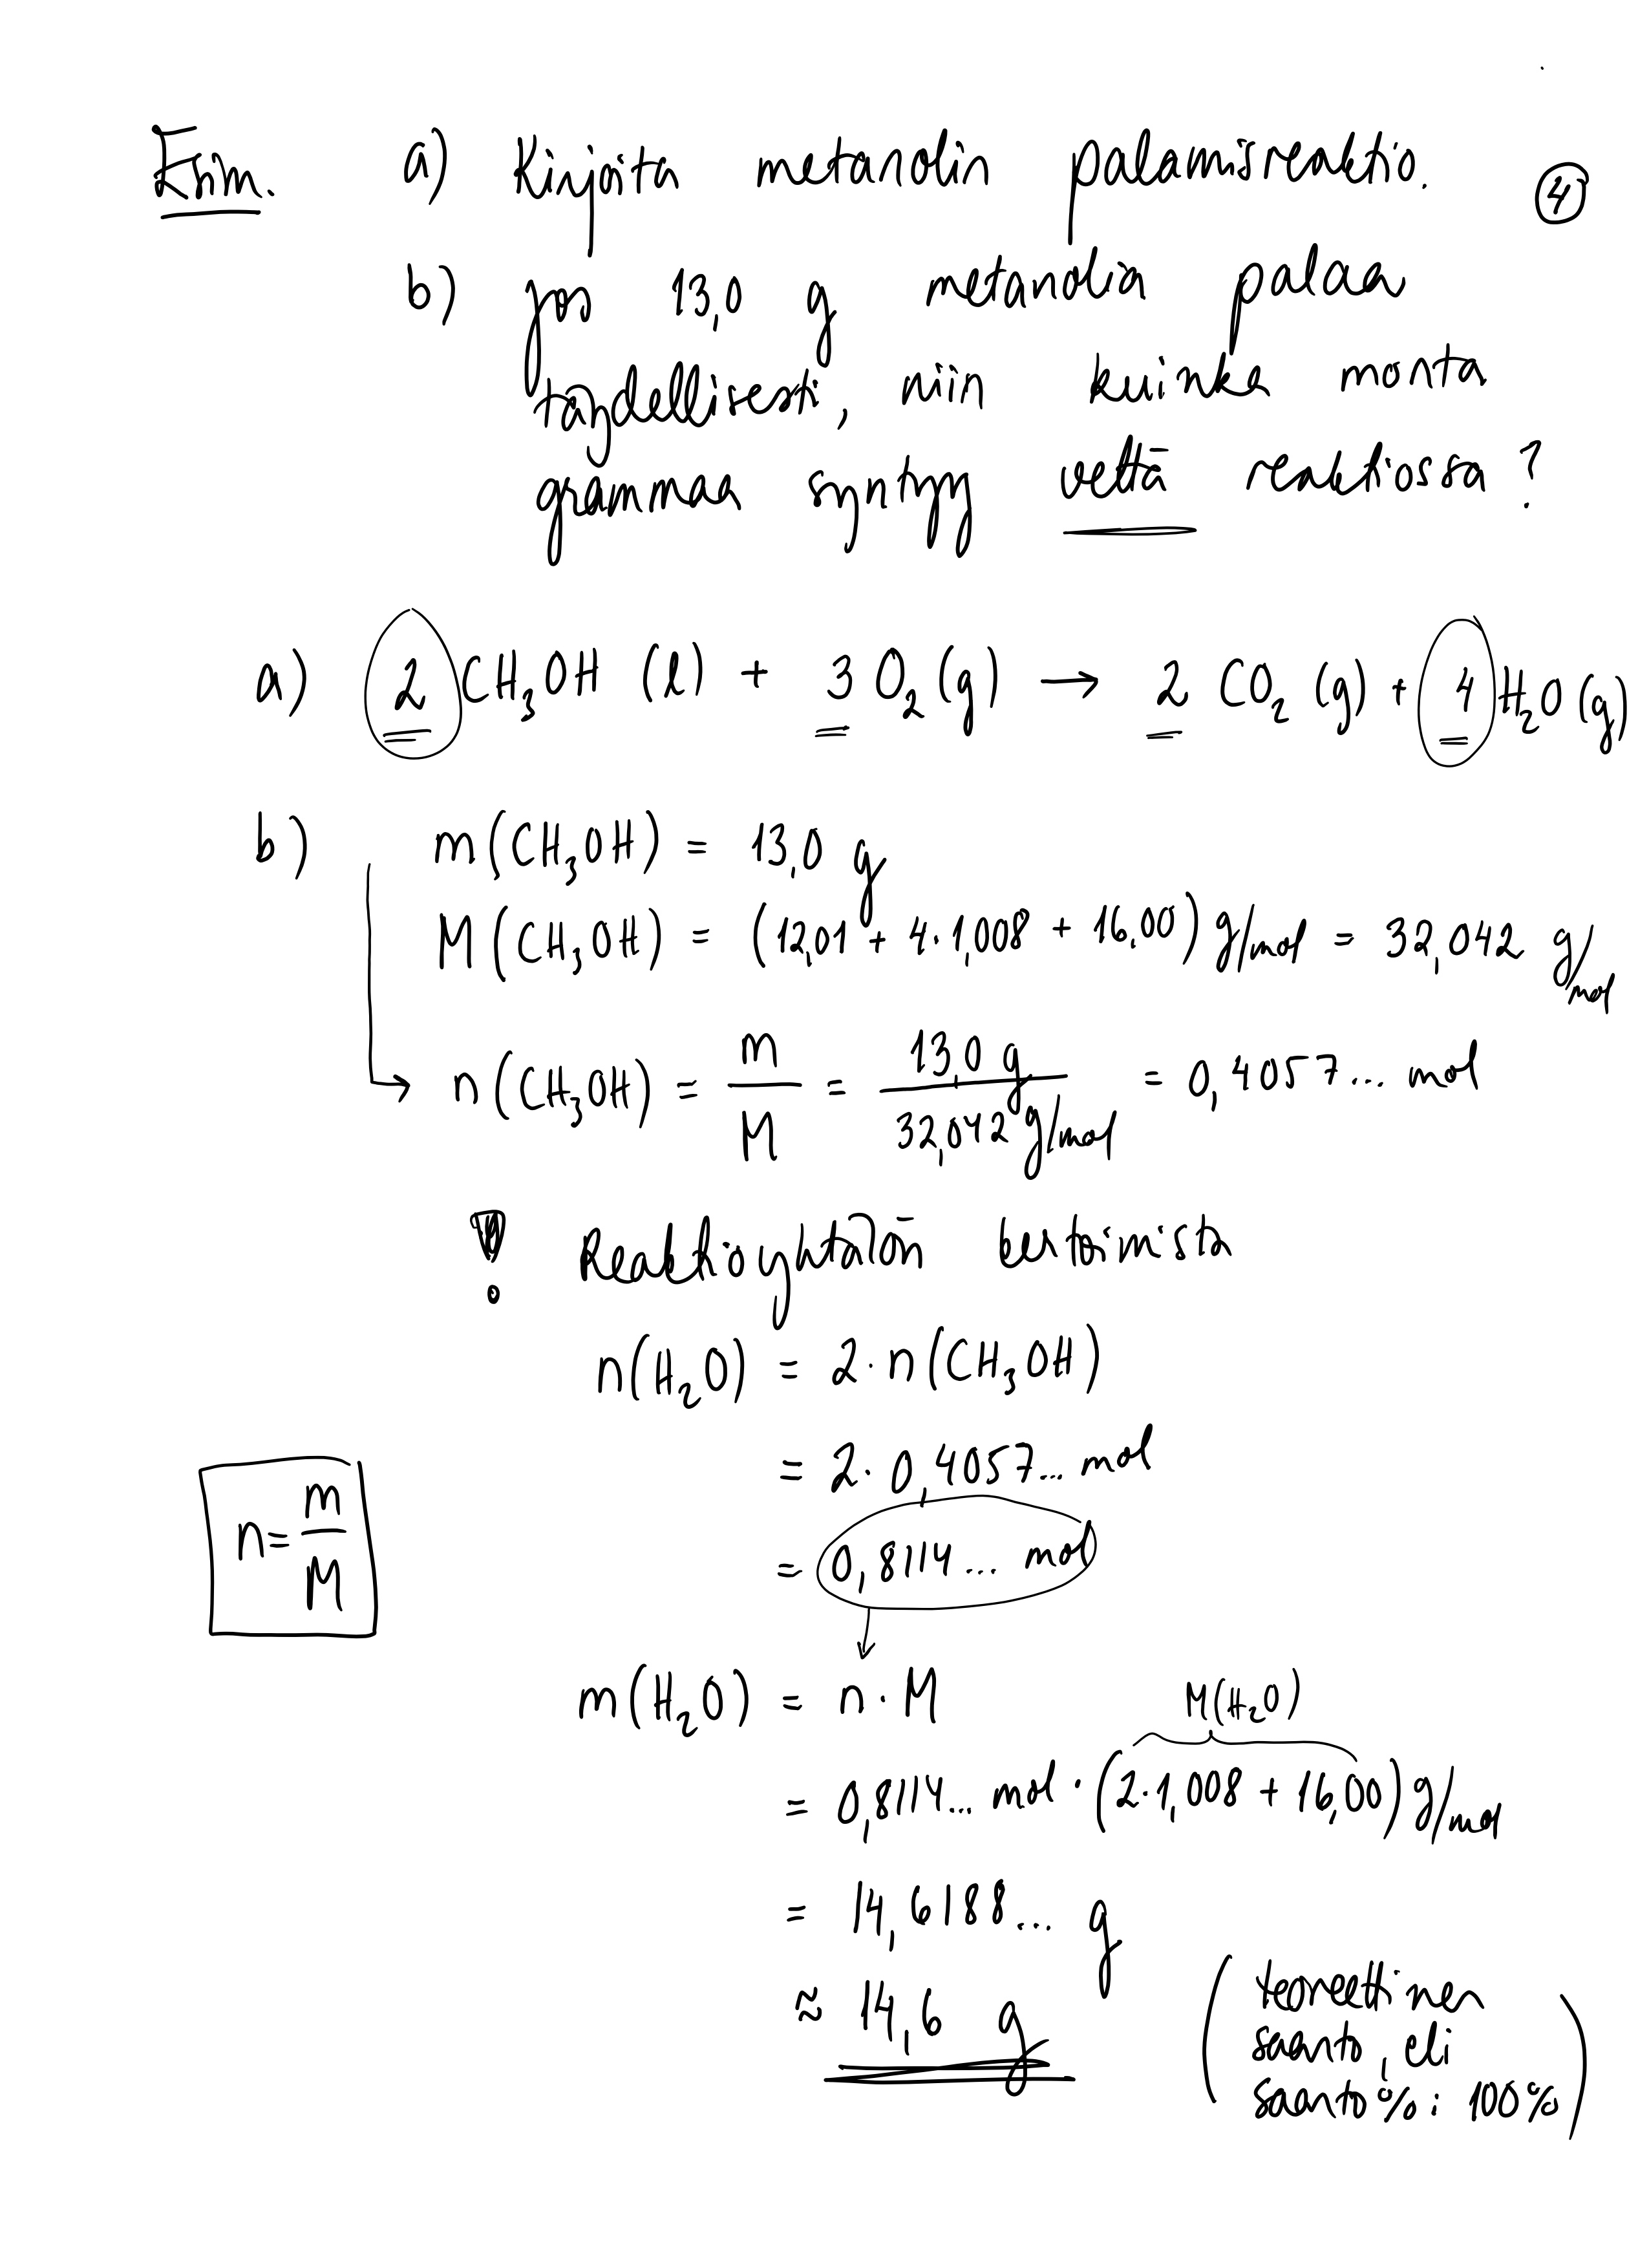 Esim. a) Kirjoita metanolin palamisreaktio. ④
b) Jos 13,0 g metanolia palaa
täydellisesti, niin kuinka monta
grammaa syntyy vettä reaktiossa?
a) 2 CH₃OH (l) + 3 O₂ (g) → 2 CO₂ (g) + 4 H₂O (g)
b) m(CH₃OH) = 13,0 g
M(CH₃OH) = (12,01 + 4·1,008 + 16,00) g/mol = 32,042 g/mol
n(CH₃OH) = m/M = 13,0 g / 32,042 g/mol = 0,4057... mol
! Reaktioyhtälön kertoimista
n(H₂O) = 2·n(CH₃OH)
= 2·0,4057... mol
n = m/M
= 0,8114... mol
m(H₂O) = n·M
M(H₂O)
= 0,8114... mol · (2·1,008 + 16,00) g/mol
= 14,6188... g
≈ 14,6 g
(teoreettinen
saanto, eli
saanto%: 100%)